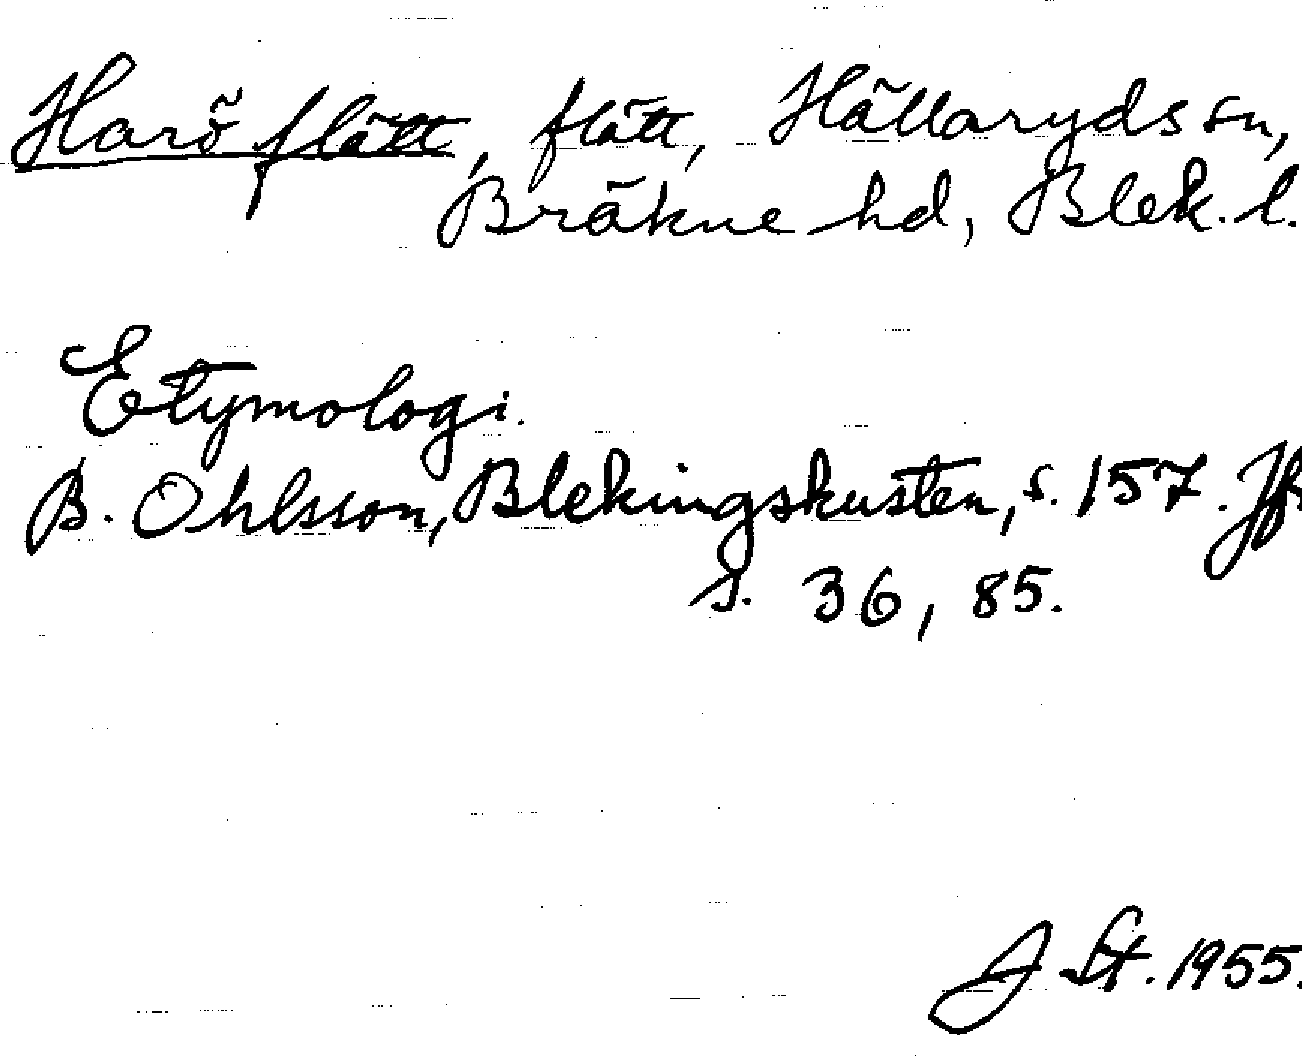 Harö flätt, flätt, Hällaryds sn,
Bräkne hd, Blek. l.
Etymologi.
B. Ohlsson, Blekingskusten, s. 157. Jfr
s. 36, 85.
J. St. 1955.